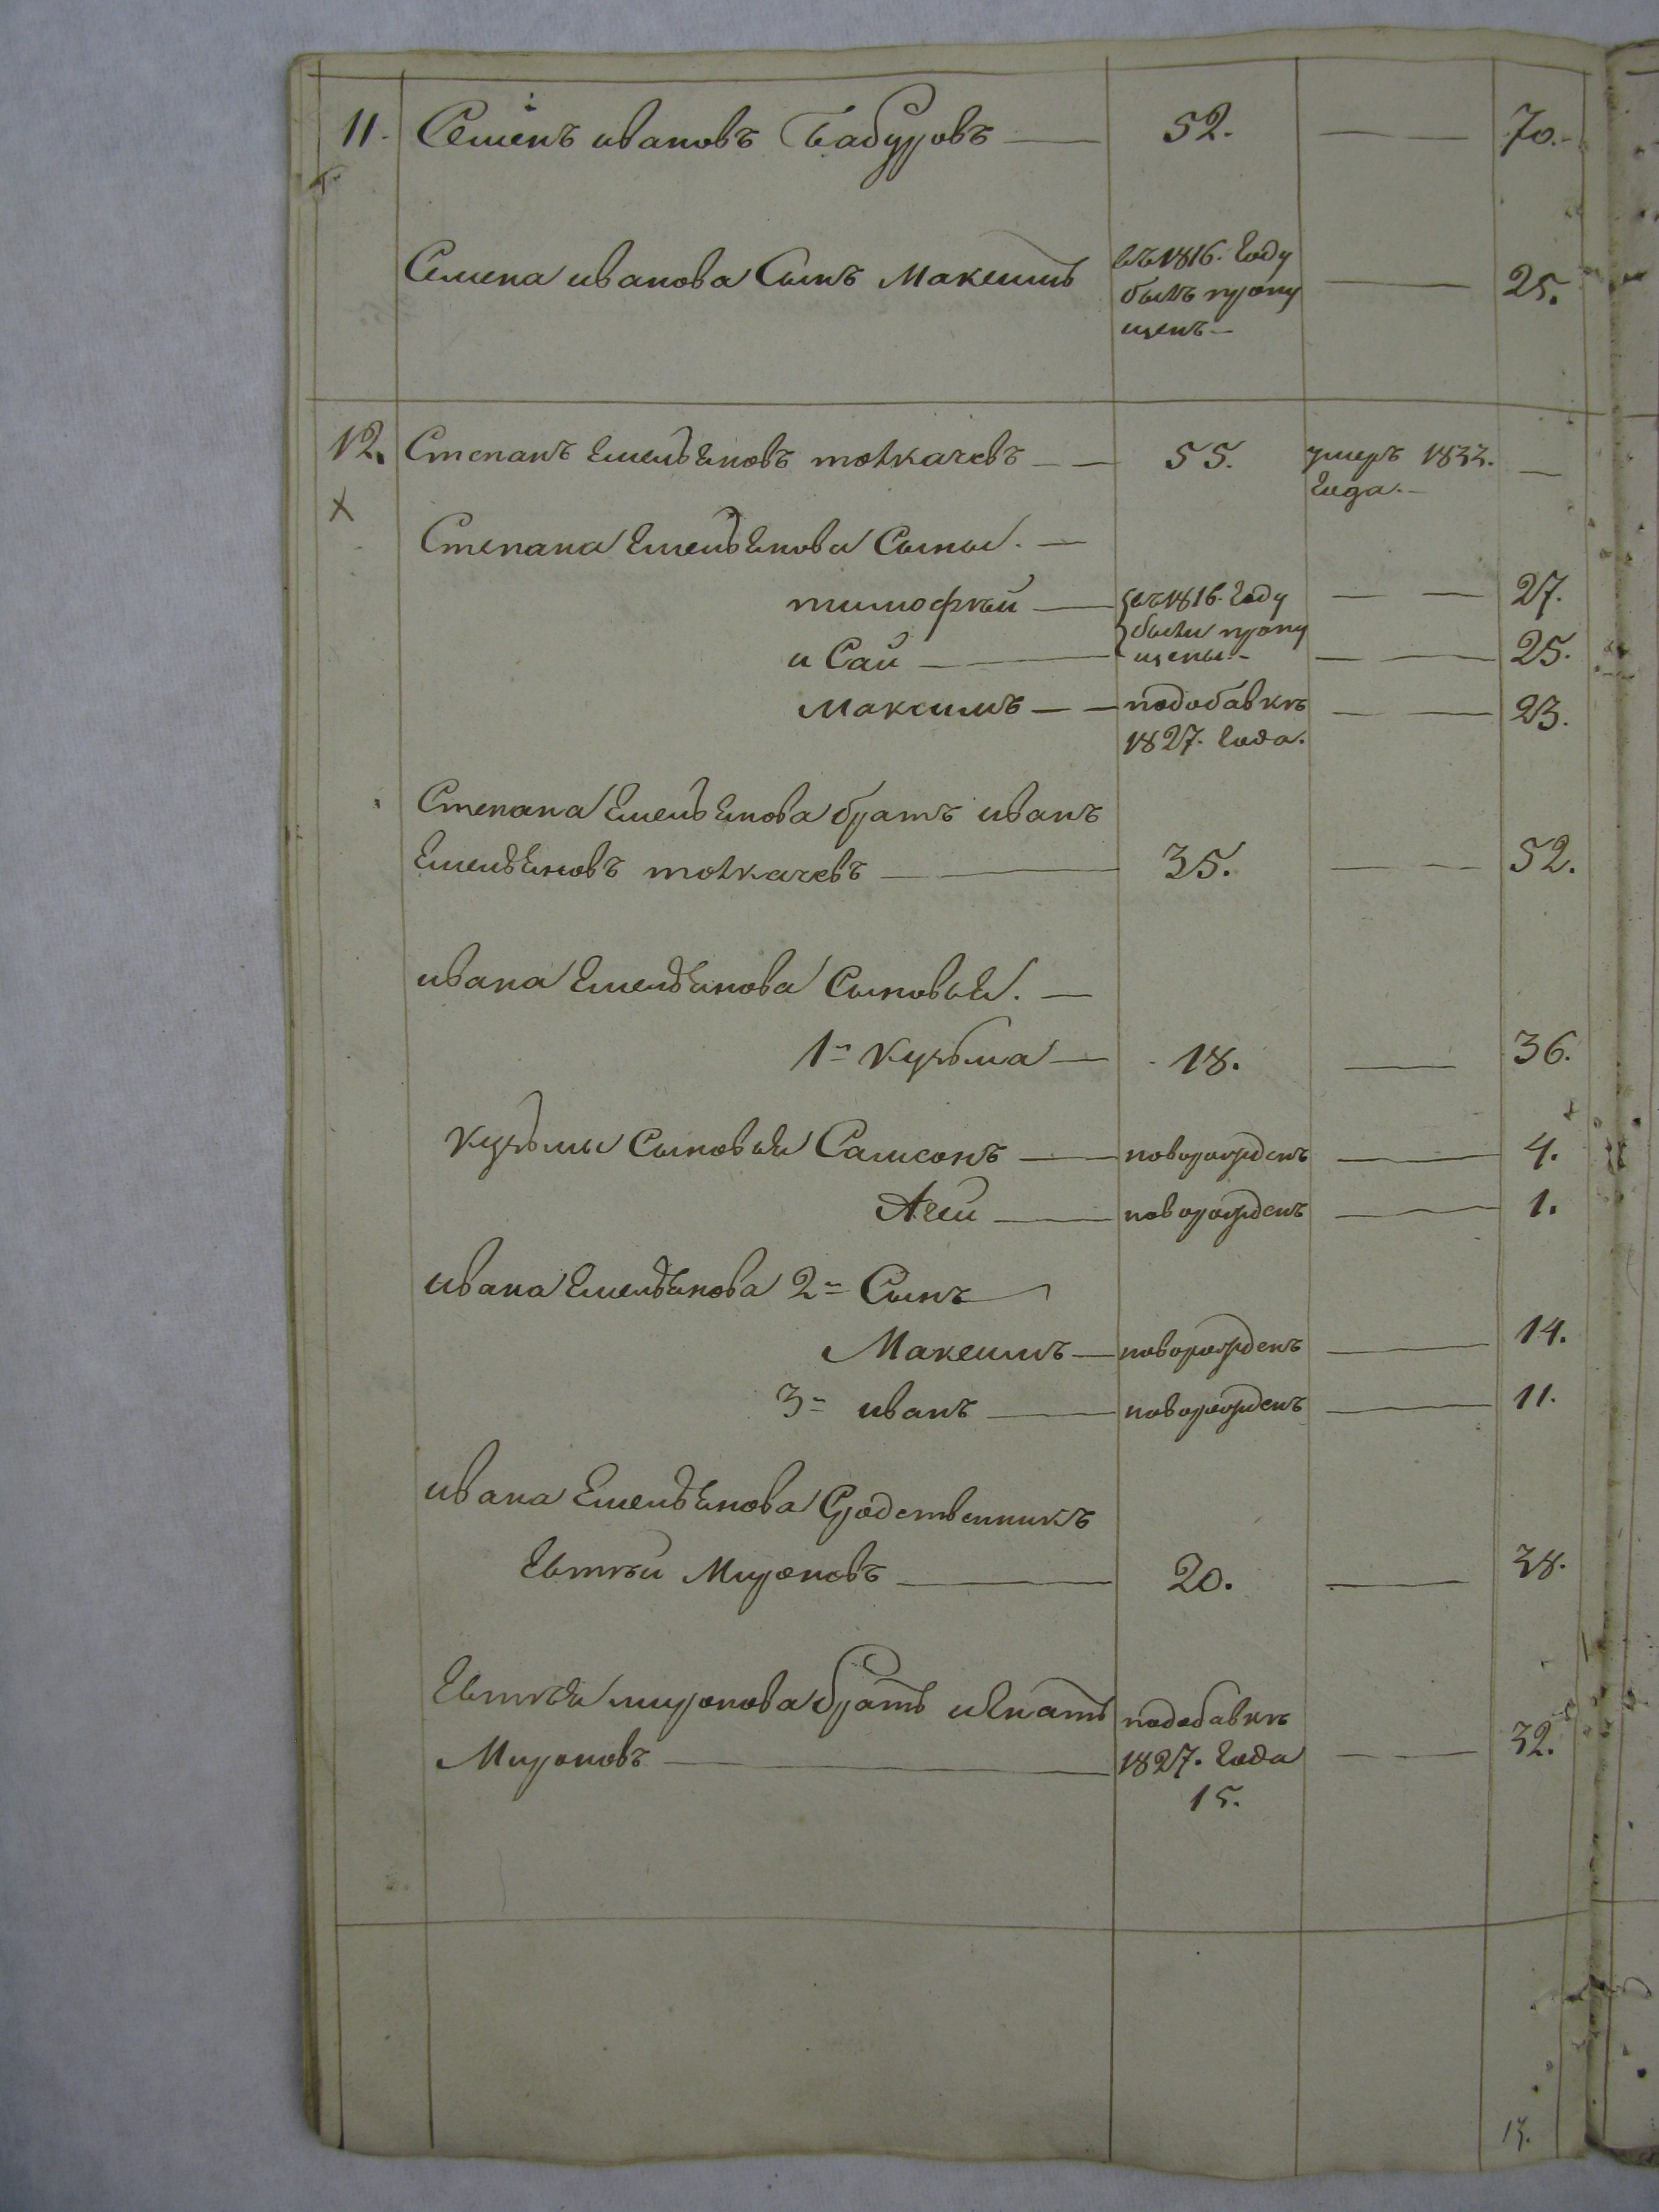 11. Семенъ ивановъ Бабуровъ — 52. — 70.
Семена иванова Сынъ Максимъ въ 1816. году — 25.
былъ пропу
щенъ —
12. Степанъ Емельяновъ толкачевъ — — 55. умеръ 1833. —
года. —
Степана Емельянова Сыны. —
тимофѣй — въ 1816. году — — 27.
были пропу
и Сай — щены. — — — 25.
максимъ — — подобавкѣ — — 23.
1827. года.
Степана Емельянова братъ иванъ
Емельяновъ толкачевъ — 35. — — 52.
ивана Емельянова Сыновья. —
1й Кузьма — 18. — 36.
Кузьмы Сыновья Самсонъ — новорожденъ — 4.
Агей — новорожденъ — 1.
ивана Емельянова 2й Сынъ
Максимъ — новорожденъ — 14.
3й иванъ — новорожденъ — 11.
ивана Емельянова Сродственникъ
Евтѣй Мироновъ — 20. — 38.
Евтѣя миронова братъ игнатъ подобавкѣ
Мироновъ — 1827. года — — 32.
15.